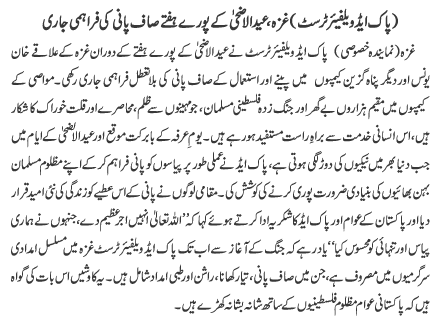 (پاک ایڈ ویلفیئر ٹرسٹ) غزہ، عیدالاضحیٰ کے پورے ہفتے صاف پانی کی فراہمی جاری
غزہ (نمایندہ خصوصی) پاک ایڈ ویلفیئر ٹرسٹ نے عیدالاضحیٰ کے پورے ہفتے کے دوران غزہ کے علاقے خان
یونس اور دیگر پناہ گزین کیمپوں میں پینے اور استعمال کے صاف پانی کی بلا تعطل فراہمی جاری رکھی۔ مواصی کے
کیمپوں میں مقیم ہزاروں بے گھر اور جنگ زدہ فلسطینی مسلمان، جو مہینوں سے ظلم، محاصرے اور قلت خوراک کا شکار
ہیں، اس انسانی خدمت سے براہِ راست مستفید ہورہے ہیں۔ یوم عرفہ کے بابرکت موقع اور عیدالاضحیٰ کے ایام میں
جب دنیا بھر میں نیکیوں کی دوڑ لگی ہوتی ہے، پاک ایڈ نے عملی طور پر پیاسوں کو پانی فراہم کرکے اپنے مظلوم مسلمان
بہن بھائیوں کی بنیادی ضرورت پوری کرنے کی کوشش کی۔ مقامی لوگوں نے پانی کے اس عطیے کو زندگی کی نئی امید قرار
دیا اور پاکستان کے عوام اور پاک ایڈ کا شکریہ ادا کرتے ہوئے کہا کہ ’’اللہ تعالیٰ انہیں اجر عظیم دے، جنہوں نے ہماری
پیاس اور تنہائی کو محسوس کیا‘‘ یاد رہے کہ جنگ کے آغاز سے اب تک پاک ایڈ ویلفیئر ٹرسٹ غزہ میں مسلسل امدادی
سرگرمیوں میں مصروف ہے، جن میں صاف پانی، تیار کھانا، راشن اور طبی امداد شامل ہیں۔ یہ کاوشیں اس بات کی گواہ
ہیں کہ پاکستانی عوام مظلوم فلسطینیوں کے ساتھ شانہ بشانہ کھڑے ہیں۔